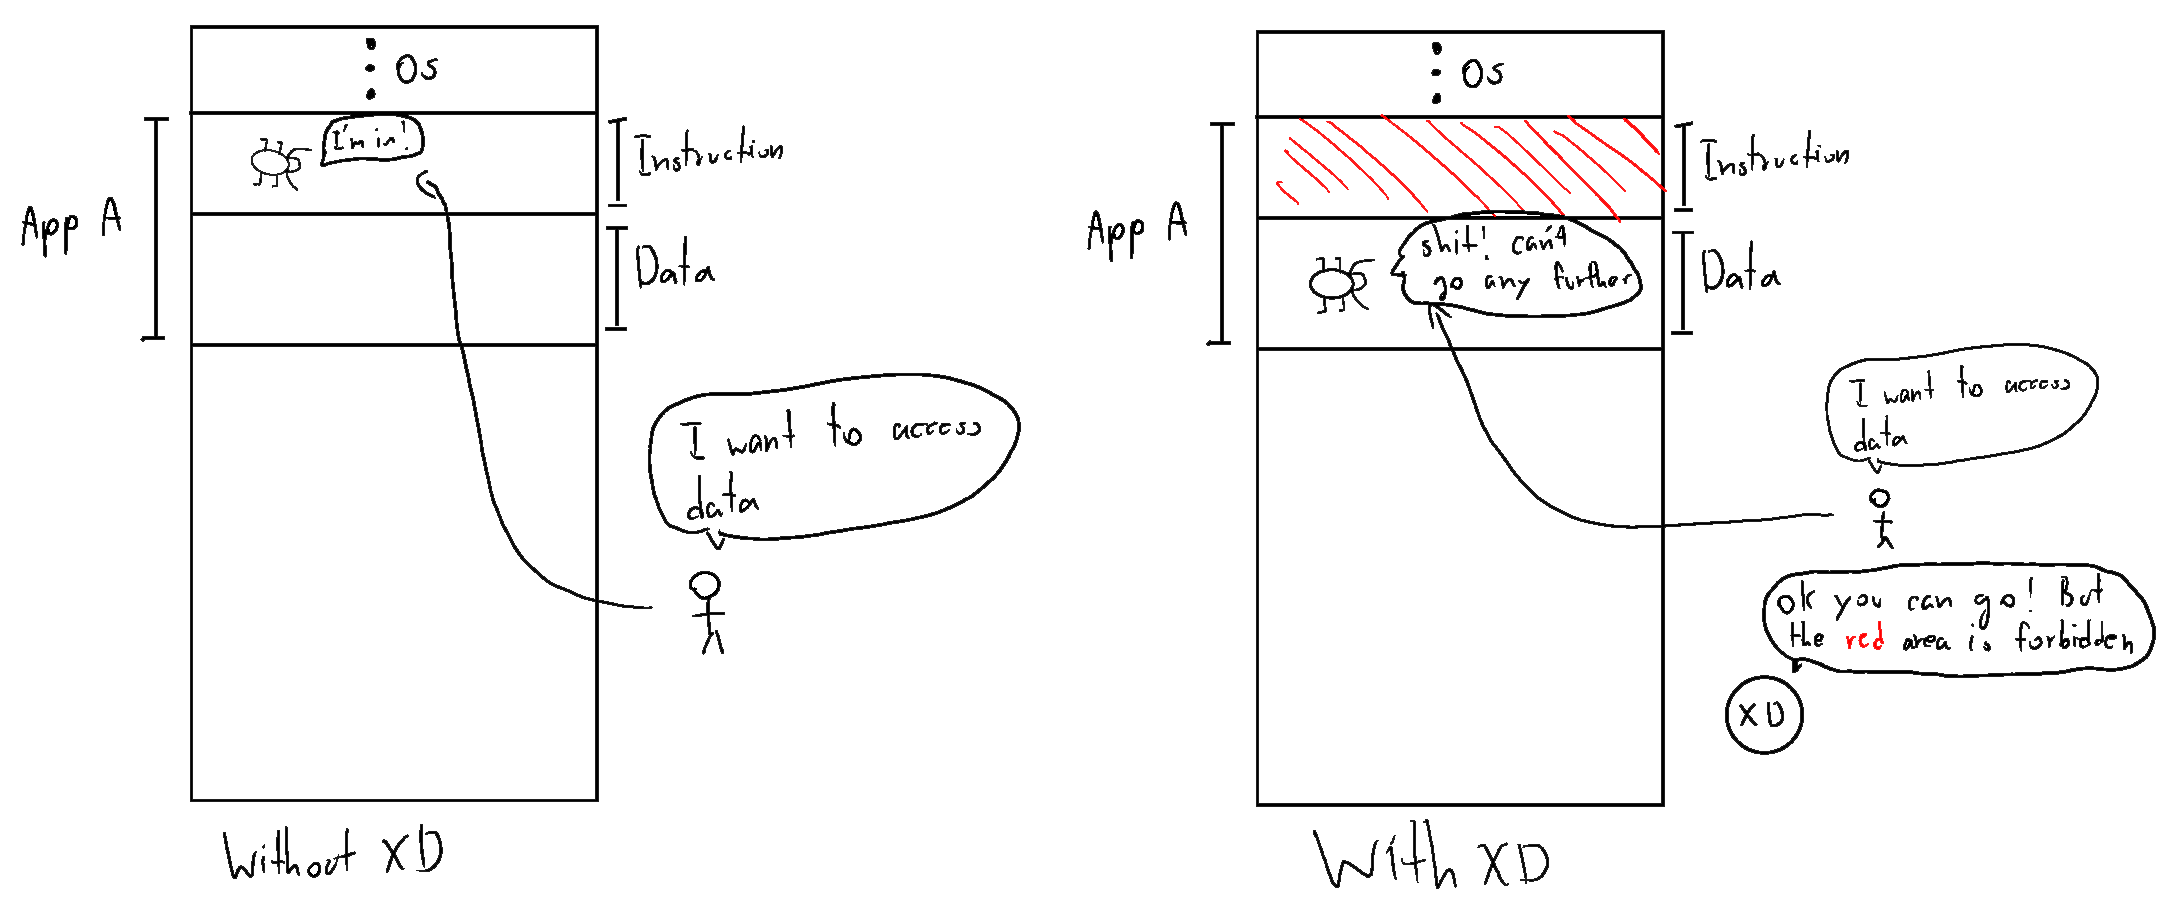 Os
I'm in!
Instruction
App A
Data
I want to access
data
Without XD
Os
Instruction
App A
shit! can't
go any further
Data
I want to access
data
ok you can go! But
the red area is forbidden
XD
With XD